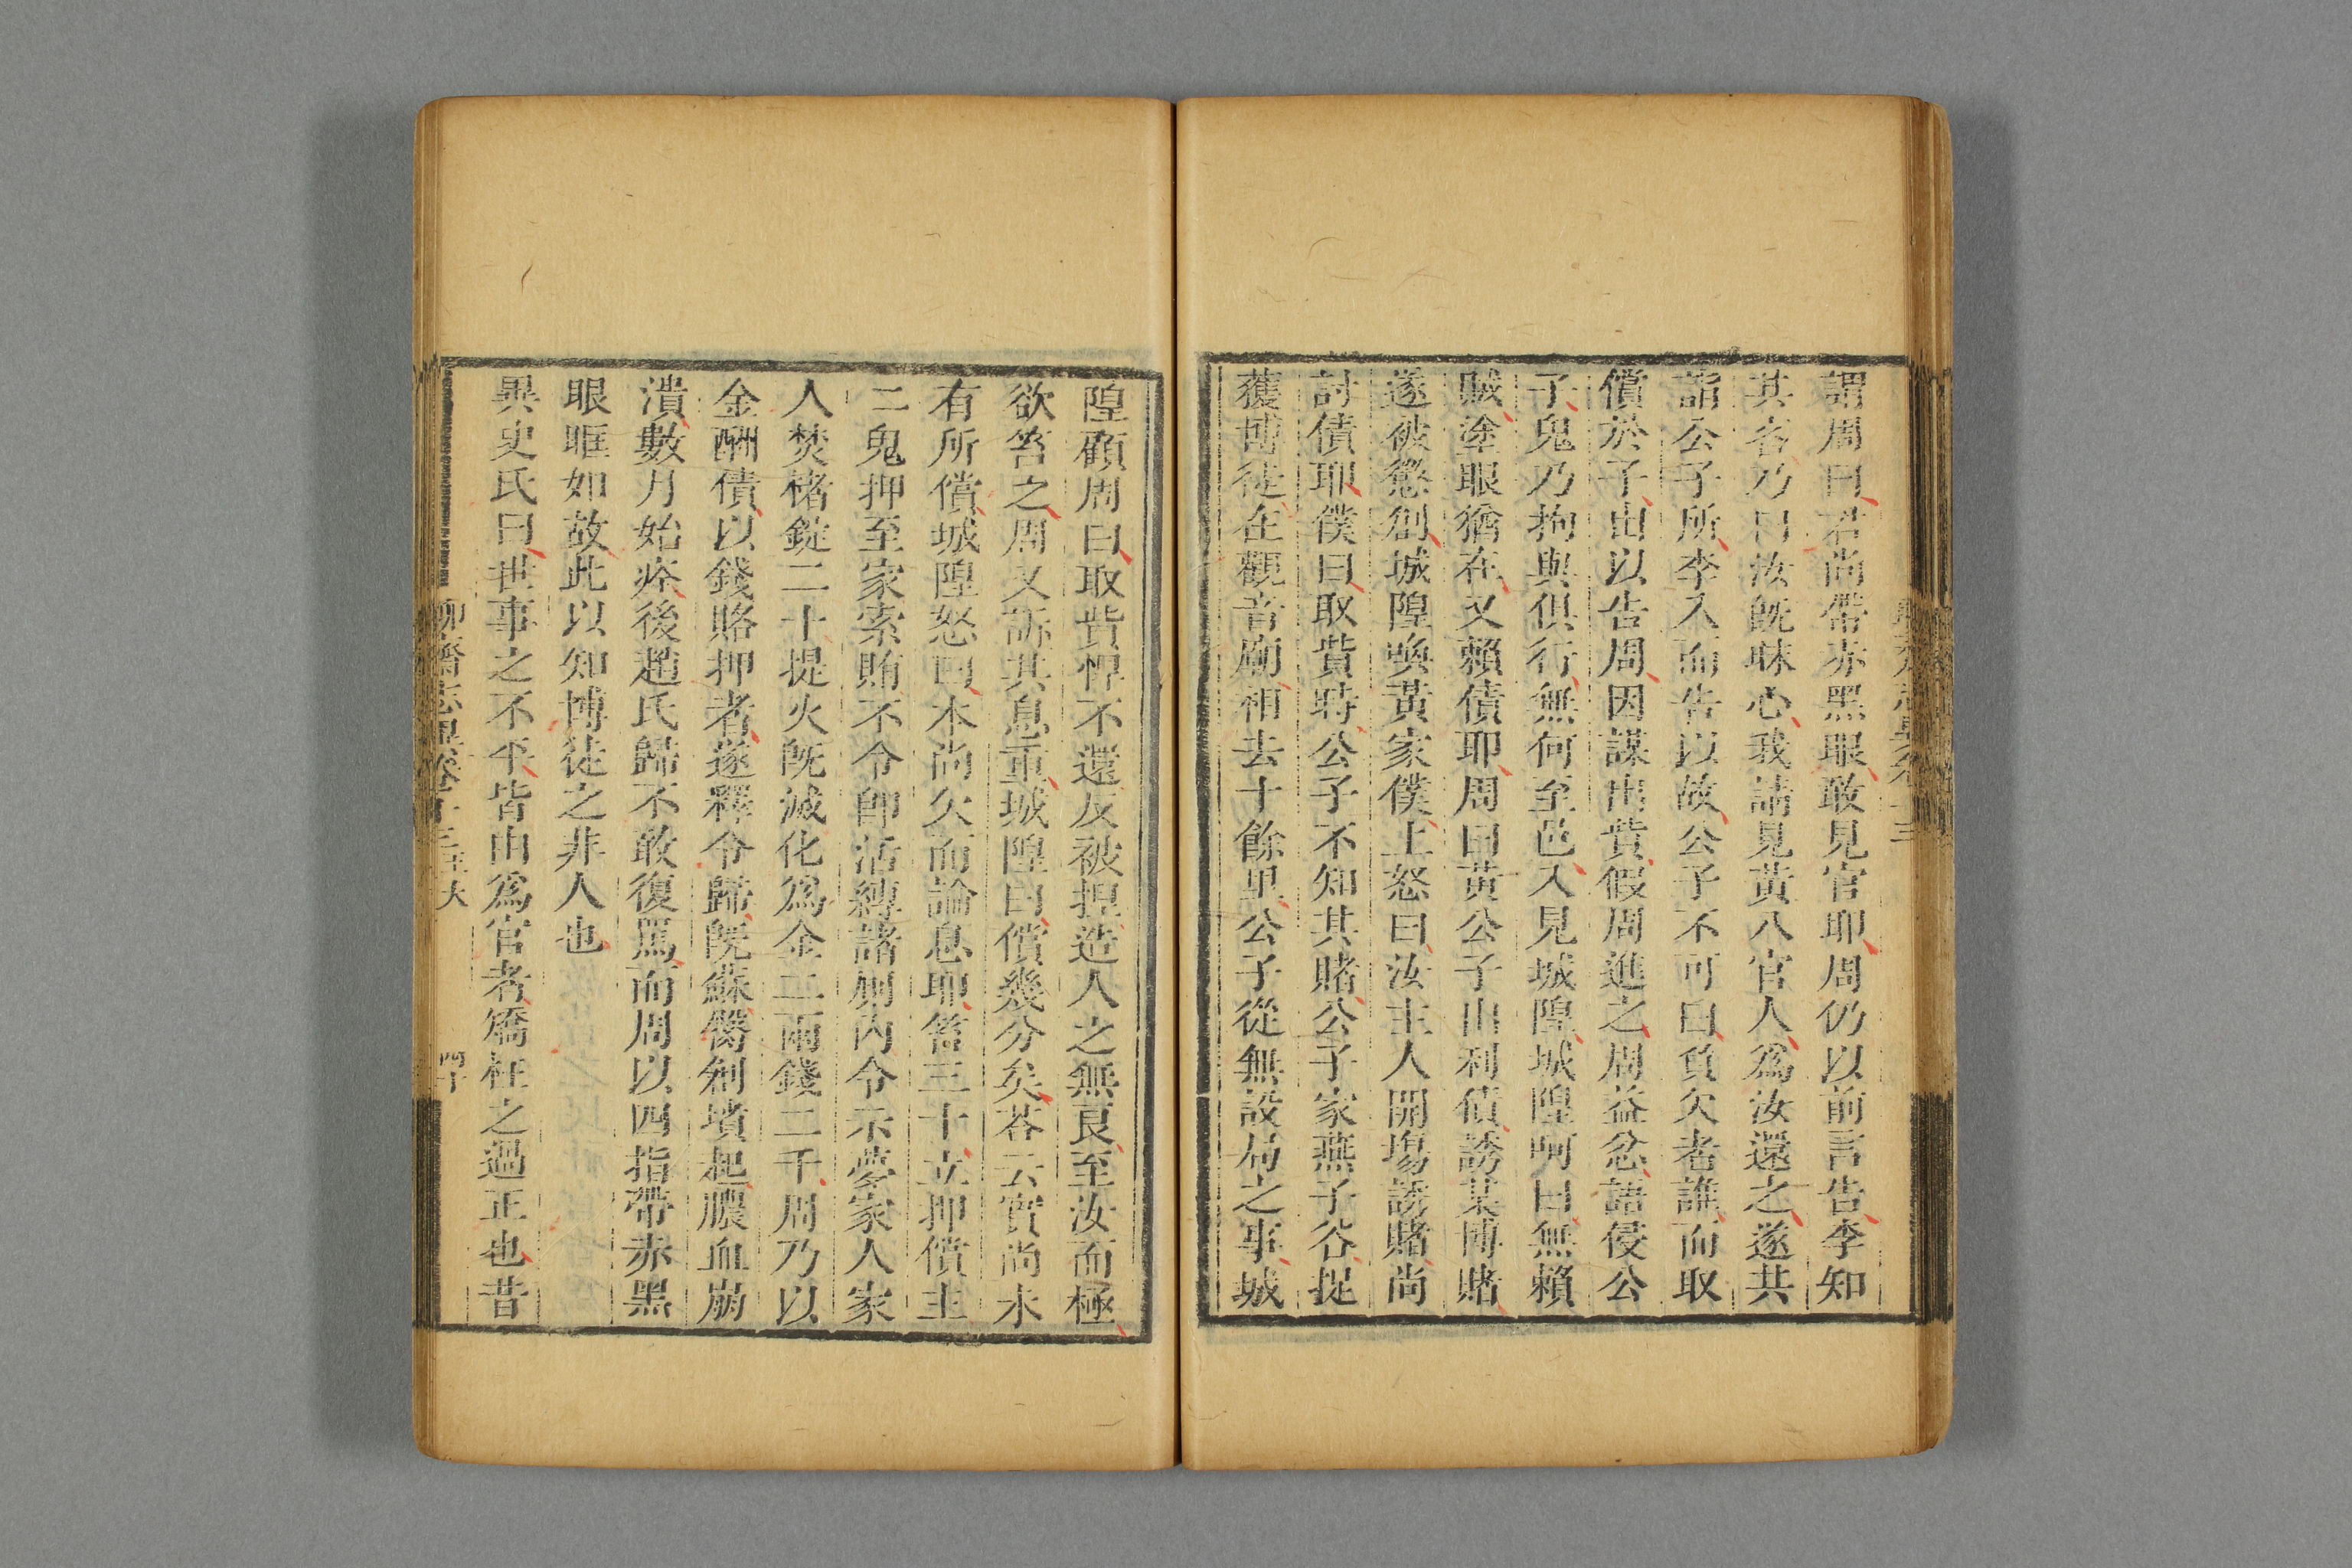 謂周曰君尚帶赤黑眼敢見官耶周仍以前言告李知
其吝乃曰汝旣昧心我請見黃八官人爲汝還之遂共
詣公子所李入而告以故公子不可曰負欠者誰而取
償於子出以告周因謀出貲假周進之周益忿語侵公
子鬼乃拘與俱行無何至邑入見城隍城隍呵曰無賴
賊塗眼猶在又賴債耶周曰黃公子出利債誘某博賭
遂被懲創城隍喚黃家僕上怒曰汝主人開塲誘賭尚
討債耶僕曰取貲時公子不知其賭公子家燕子谷捉
獲博徒在觀音廟相去十餘里公子從無設局之事城
隍顧周曰取貲悍不還反被捏造人之無良至汝而極
欲笞之周又訴其息重城隍曰償幾分矣荅云實尚未
有所償城隍怒曰本尚欠而論息耶笞三十立押償主
二鬼押至家索賄不令卽活縛諸厠內令示夢家人家
人焚楮錠二十提火旣滅化爲金二兩錢二千周乃以
金酬債以錢賂押者遂釋令歸旣蘇臀創墳起膿血崩
潰數月始痊後趙氏歸不敢復罵而周以四指帶赤黑
眼眶如故此以知博徒之非人也
異史氏曰世事之不平皆由爲官者矯枉之過正也昔
聊齋志異卷十三 王大 四十